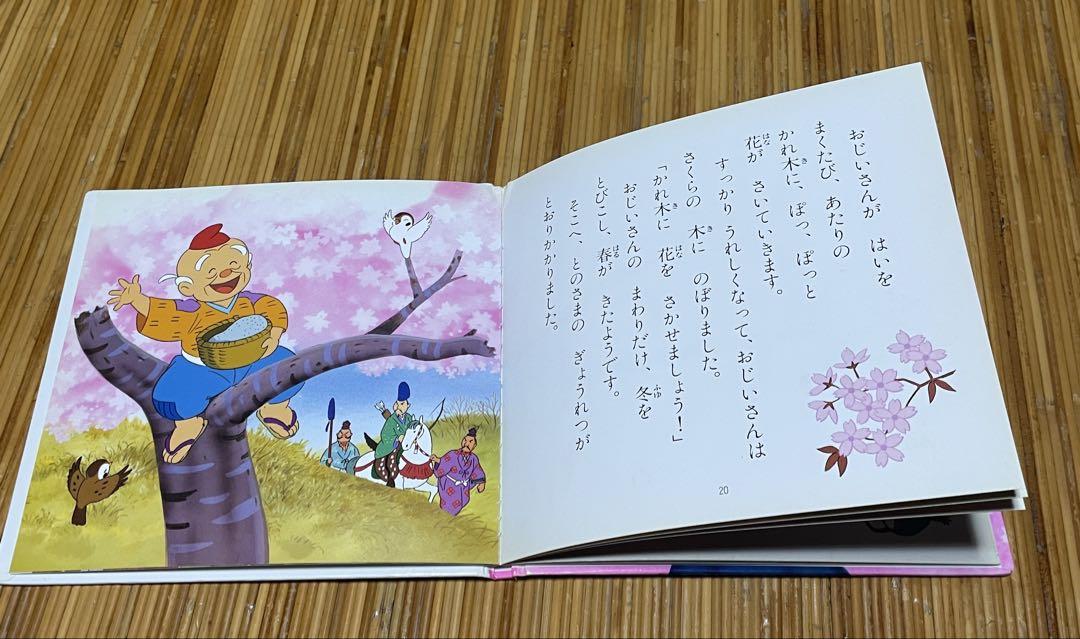 おじいさんが はいを
まくたび、あたりの
かれ木に、ぽっ、ぽっと
花が さいていきます。
すっかり うれしくなって、おじいさんは
さくらの 木に のぼりました。
「かれ木に 花を さかせましょう！」
おじいさんの まわりだけ、冬を
とびこし、春が きたようです。
そこへ、とのさまの ぎょうれつが
とおりかかりました。
20